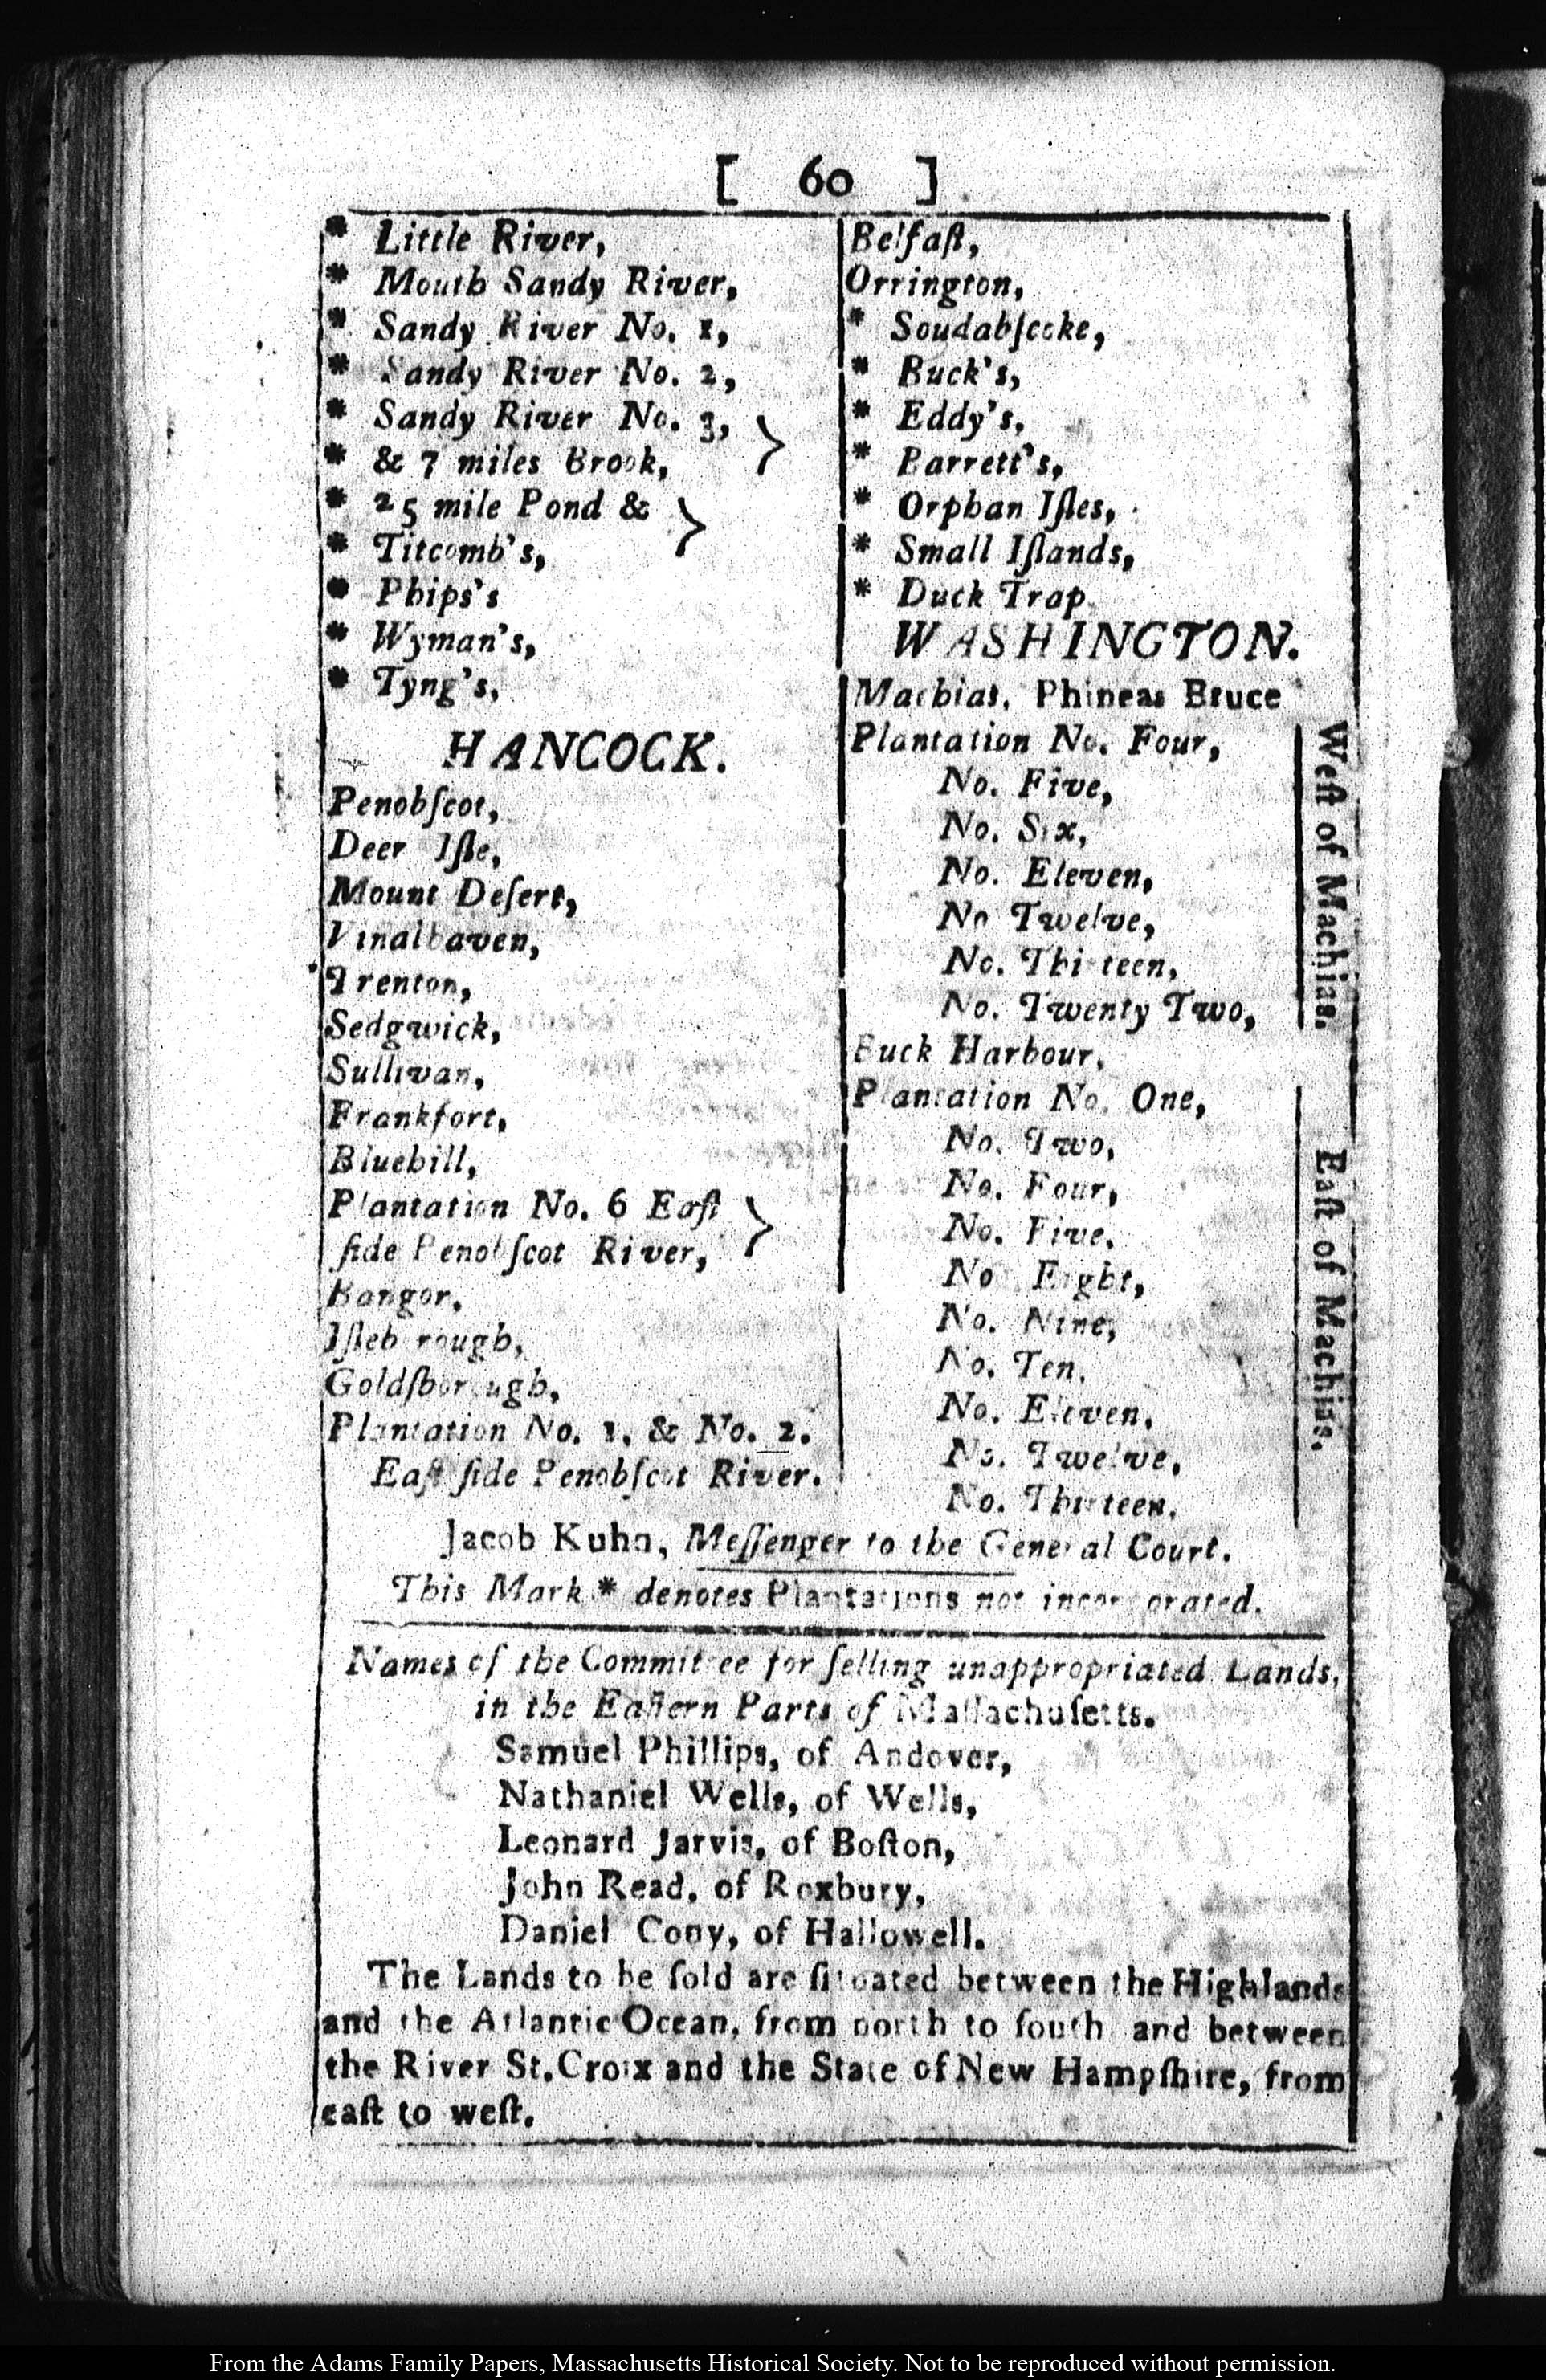 [ 60 ]
* Little River,
* Mouth Sandy River,
* Sandy River No. 1,
* Sandy River No. 2,
* Sandy River No. 3, }
* & 7 miles Brook,
* 25 mile Pond & }
* Titcomb's,
* Phips's
* Wyman's,
* Tyng's,
HANCOCK.
Penobſcot,
Deer Iſle,
Mount Deſert,
Vinalhaven,
Trenton,
Sedgwick,
Sullivan,
Frankfort,
Bluehill,
Plantation No. 6 Eaſt }
ſide Penobſcot River,
Bangor,
Iſleborough,
Goldſborough,
Plantation No. 1. & No. 2.
Eaſt ſide Penobſcot River.
Belfaſt,
Orrington,
* Soudabſcoke,
* Buck's,
* Eddy's,
* Barrett's,
* Orphan Iſles,
* Small Iſlands,
* Duck Trap.
WASHINGTON.
Machias, Phineas Bruce
Plantation No. Four,
No. Five,
No. Six,
No. Eleven,
No Twelve,
No. Thirteen,
No. Twenty Two,
Weſt of Machias.
Buck Harbour,
Plantation No. One,
No. Two,
No. Four,
No. Five,
No. Eight,
No. Nine,
No. Ten,
No. Eleven,
No. Twelve,
No. Thirteen.
Eaſt of Machias.
Jacob Kuhn, Meſſenger to the General Court.
This Mark * denotes Plantations not incorporated.
Names of the Committee for ſelling unappropriated Lands,
in the Eaſtern Parts of Maſſachuſetts.
Samuel Phillips, of Andover,
Nathaniel Wells, of Wells,
Leonard Jarvis, of Boſton,
John Read, of Roxbury,
Daniel Cony, of Hallowell.
The Lands to be ſold are ſituated between the Highlands
and the Atlantic Ocean, from north to ſouth and between
the River St. Croix and the State of New Hampſhire, from
eaſt to weſt.
From the Adams Family Papers, Massachusetts Historical Society. Not to be reproduced without permission.